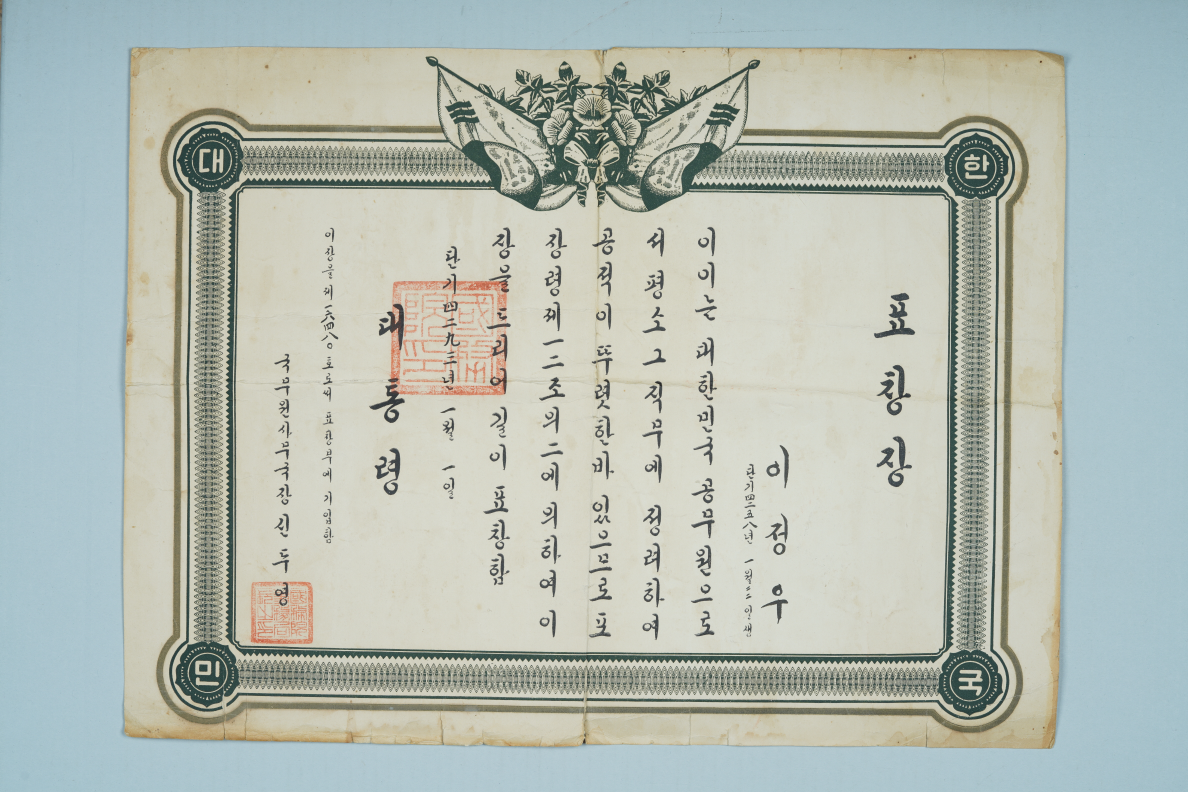 대 한 민 국
표창장
이정우
단기四二五八年 一월二二일생
이이는 대한민국 공무원으로
서 평소 그 직무에 정려하여
공적이 뚜렷한바 있으므로 포
장령제一二조의二에 의하여 이
장을 드리어 길이 표창함
단기四二九三년 一월 一일
대통령
이장을제一六四八〇호로써 표창부에 기입함
국무원사무국장 신두영